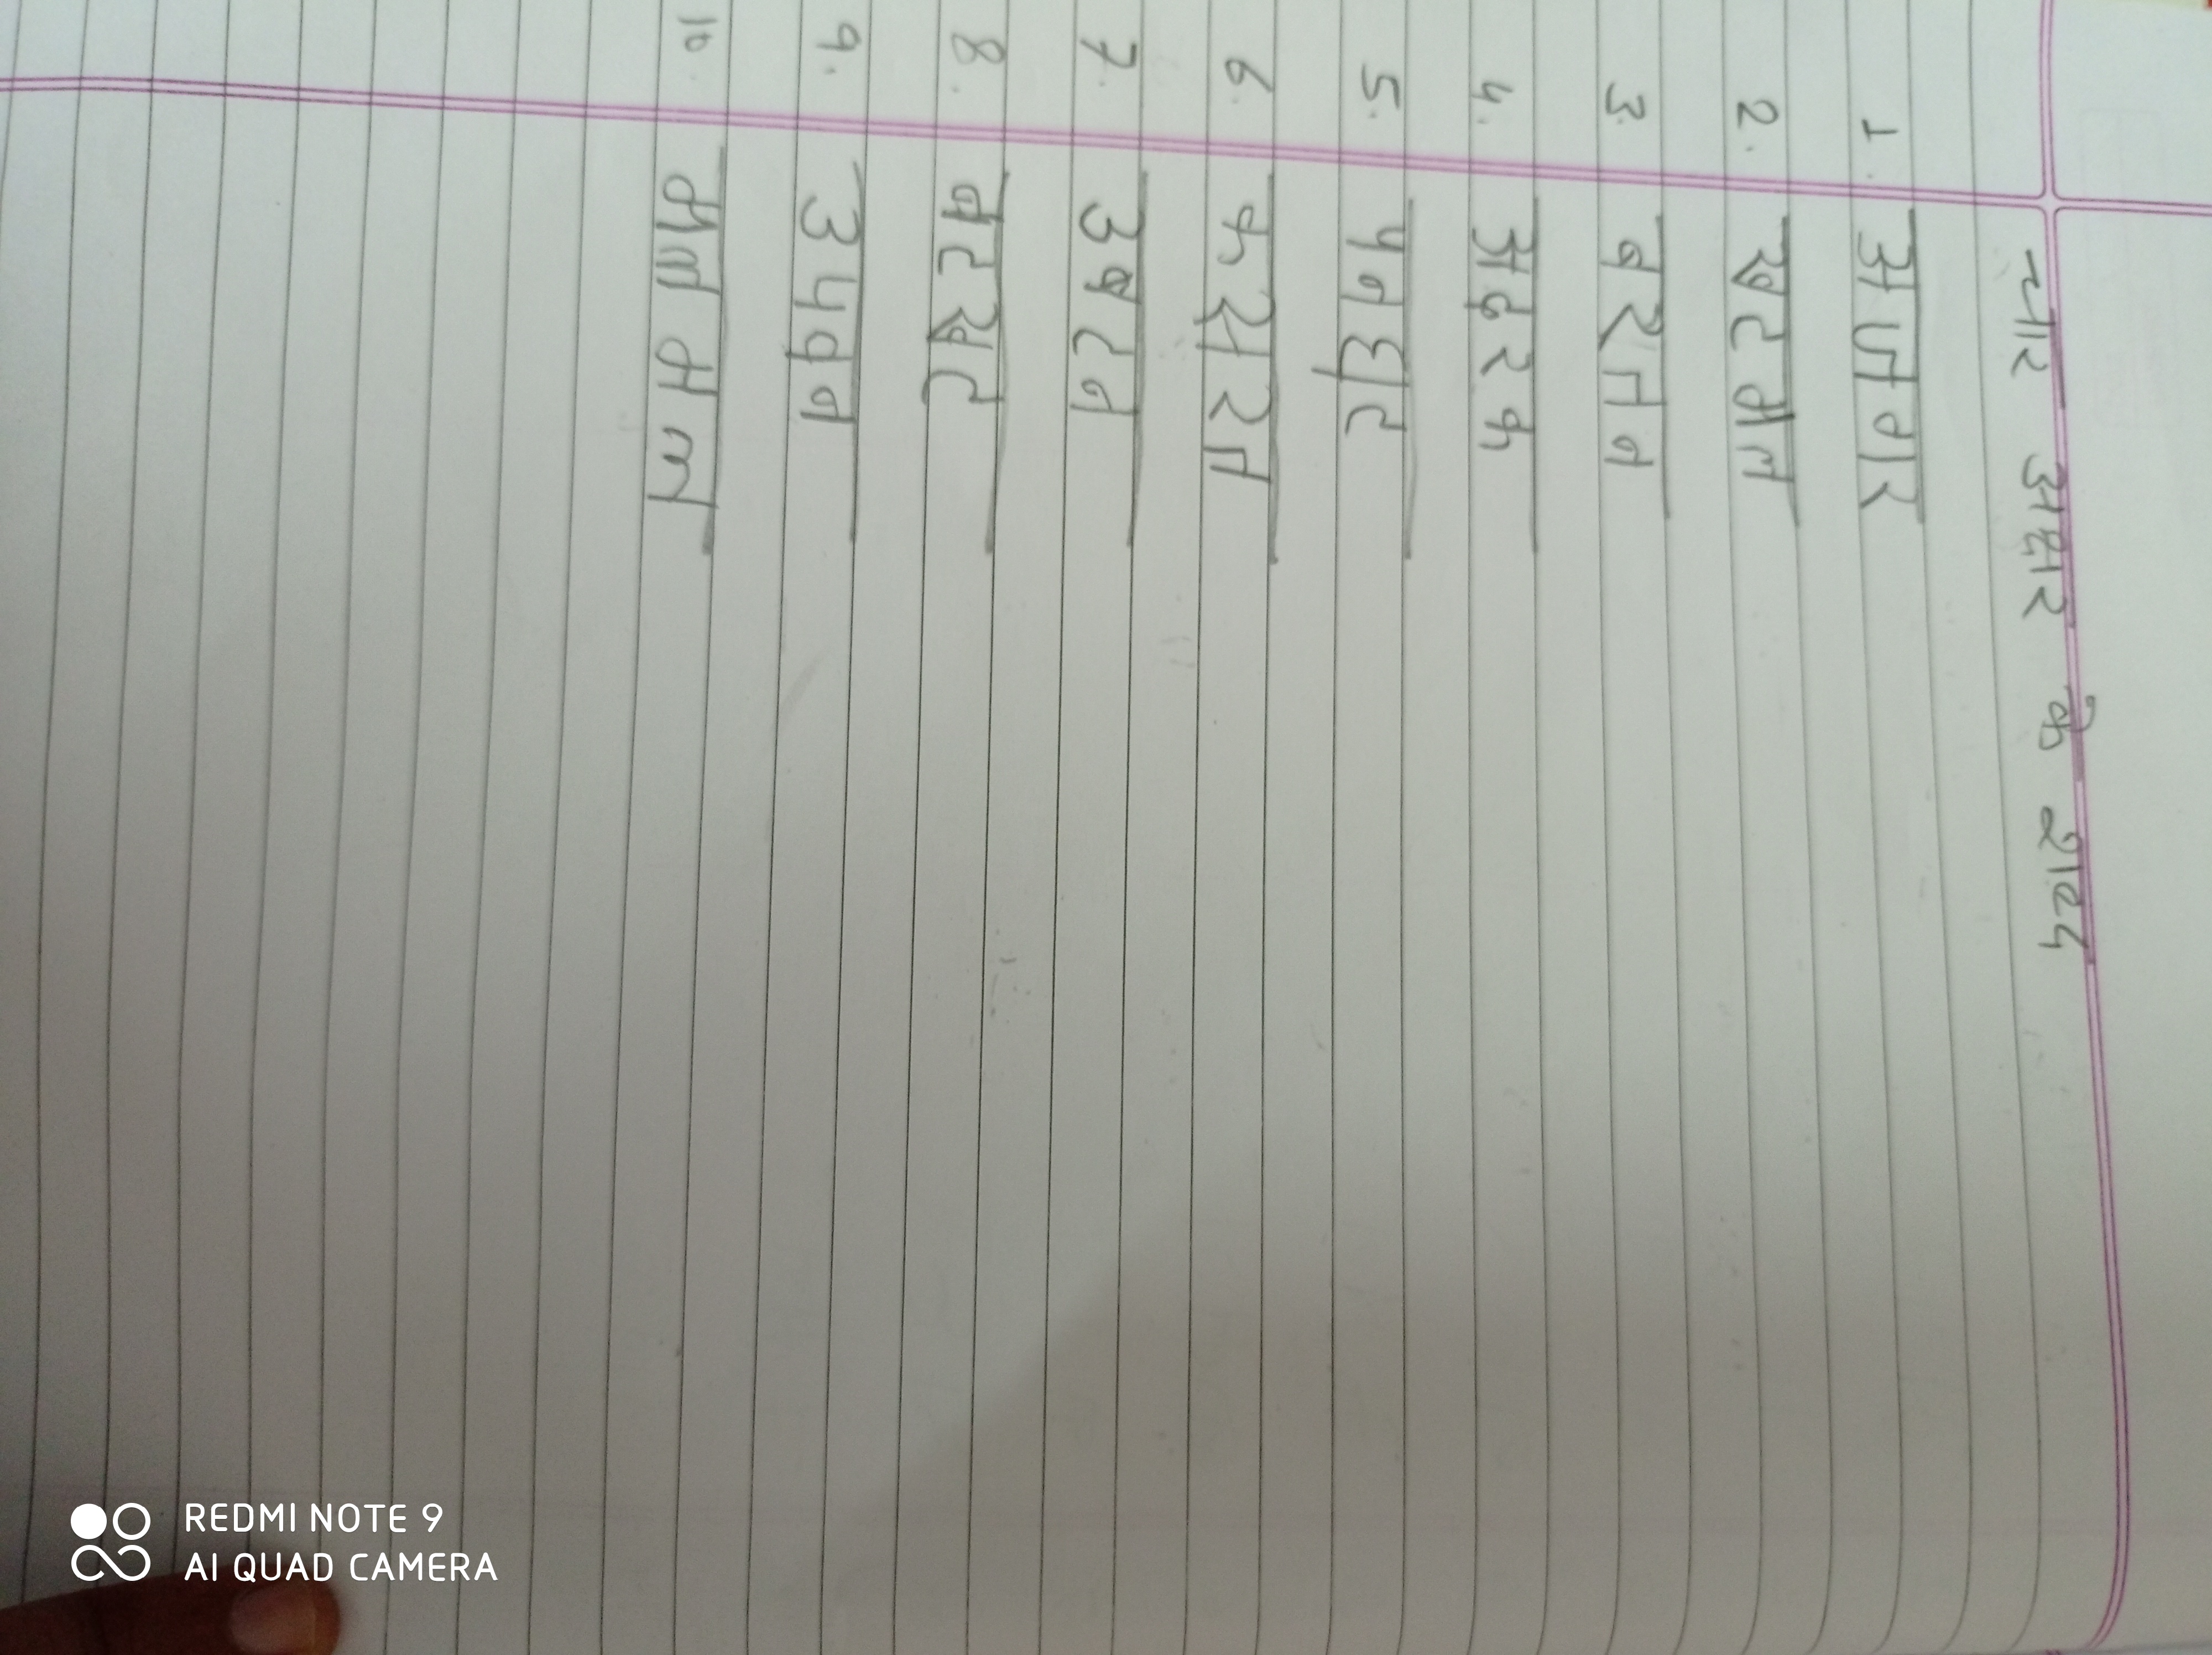 चार अक्षर के शब्द
1. अजगर
2. खटमल
3. बरतन
4. अदरक
5. पनघट
6. कसरत
7. उबटन
8. नटखट
9. उपवन
10. मलमल
REDMI NOTE 9
AI QUAD CAMERA